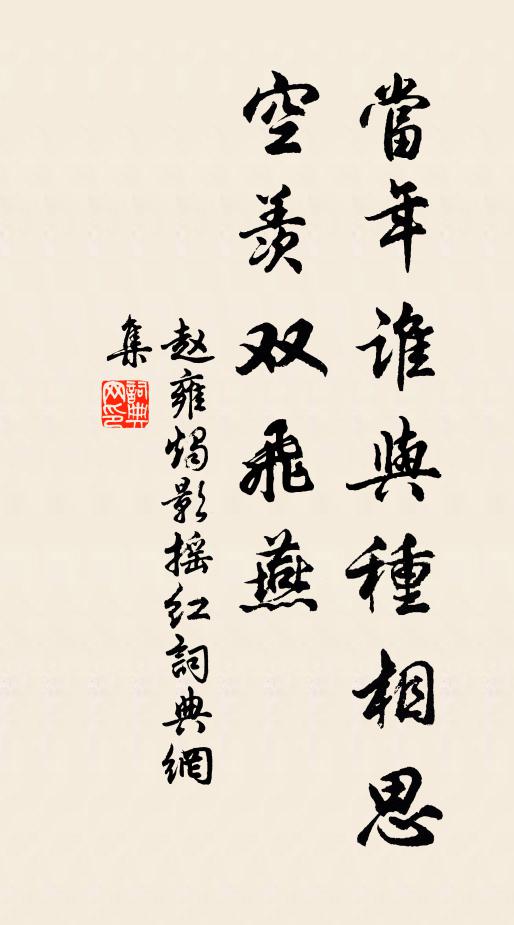 當年誰與種相思
空羨双飛燕
赵雍燭影摇红詞典網
集
詞典
网印